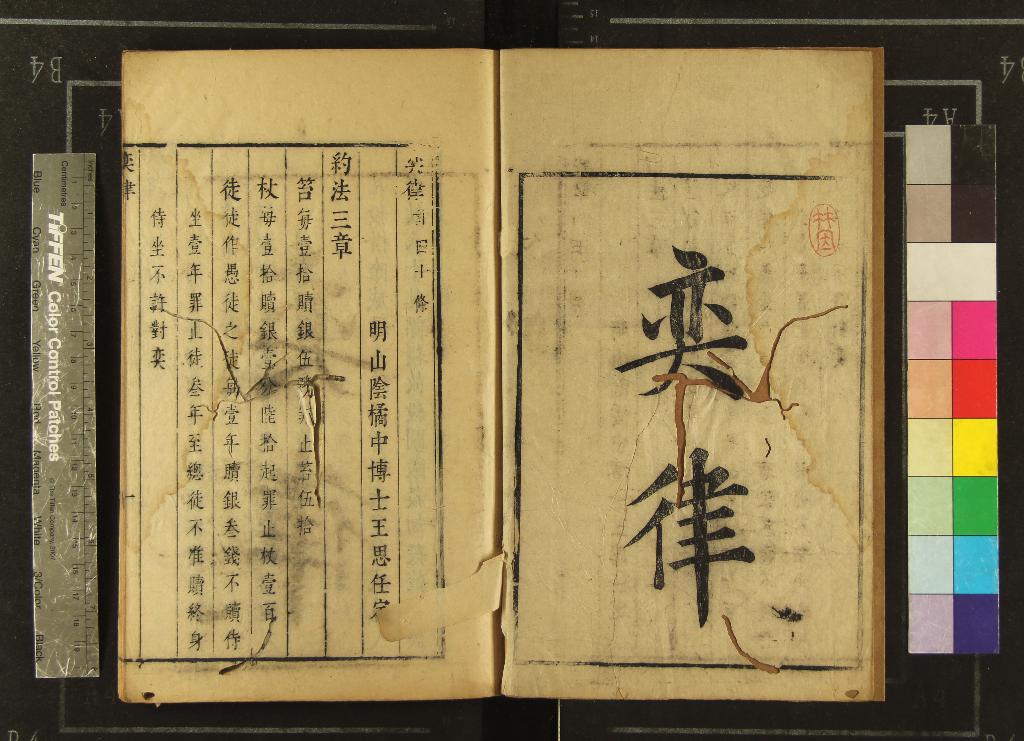 奕律
奕律
四十條
明山陰橘中博士王思任定
約法三章
笞每壹拾贖銀伍
止笞伍拾
杖每壹拾贖銀壹分陸拾起罪止杖壹百
徒徒作愚徒之徒每壹年贖銀叁錢不贖侍
坐壹年罪止徒叁年至總徒不准贖終身
侍坐不許對奕
奕律
一
TIFFEN Color Control Patches
© The Tiffen Company, 2007
Centimetres
Inches
Blue
Cyan
Green
Yellow
Red
Magenta
White
3/Color
Black
B4
A4
A4